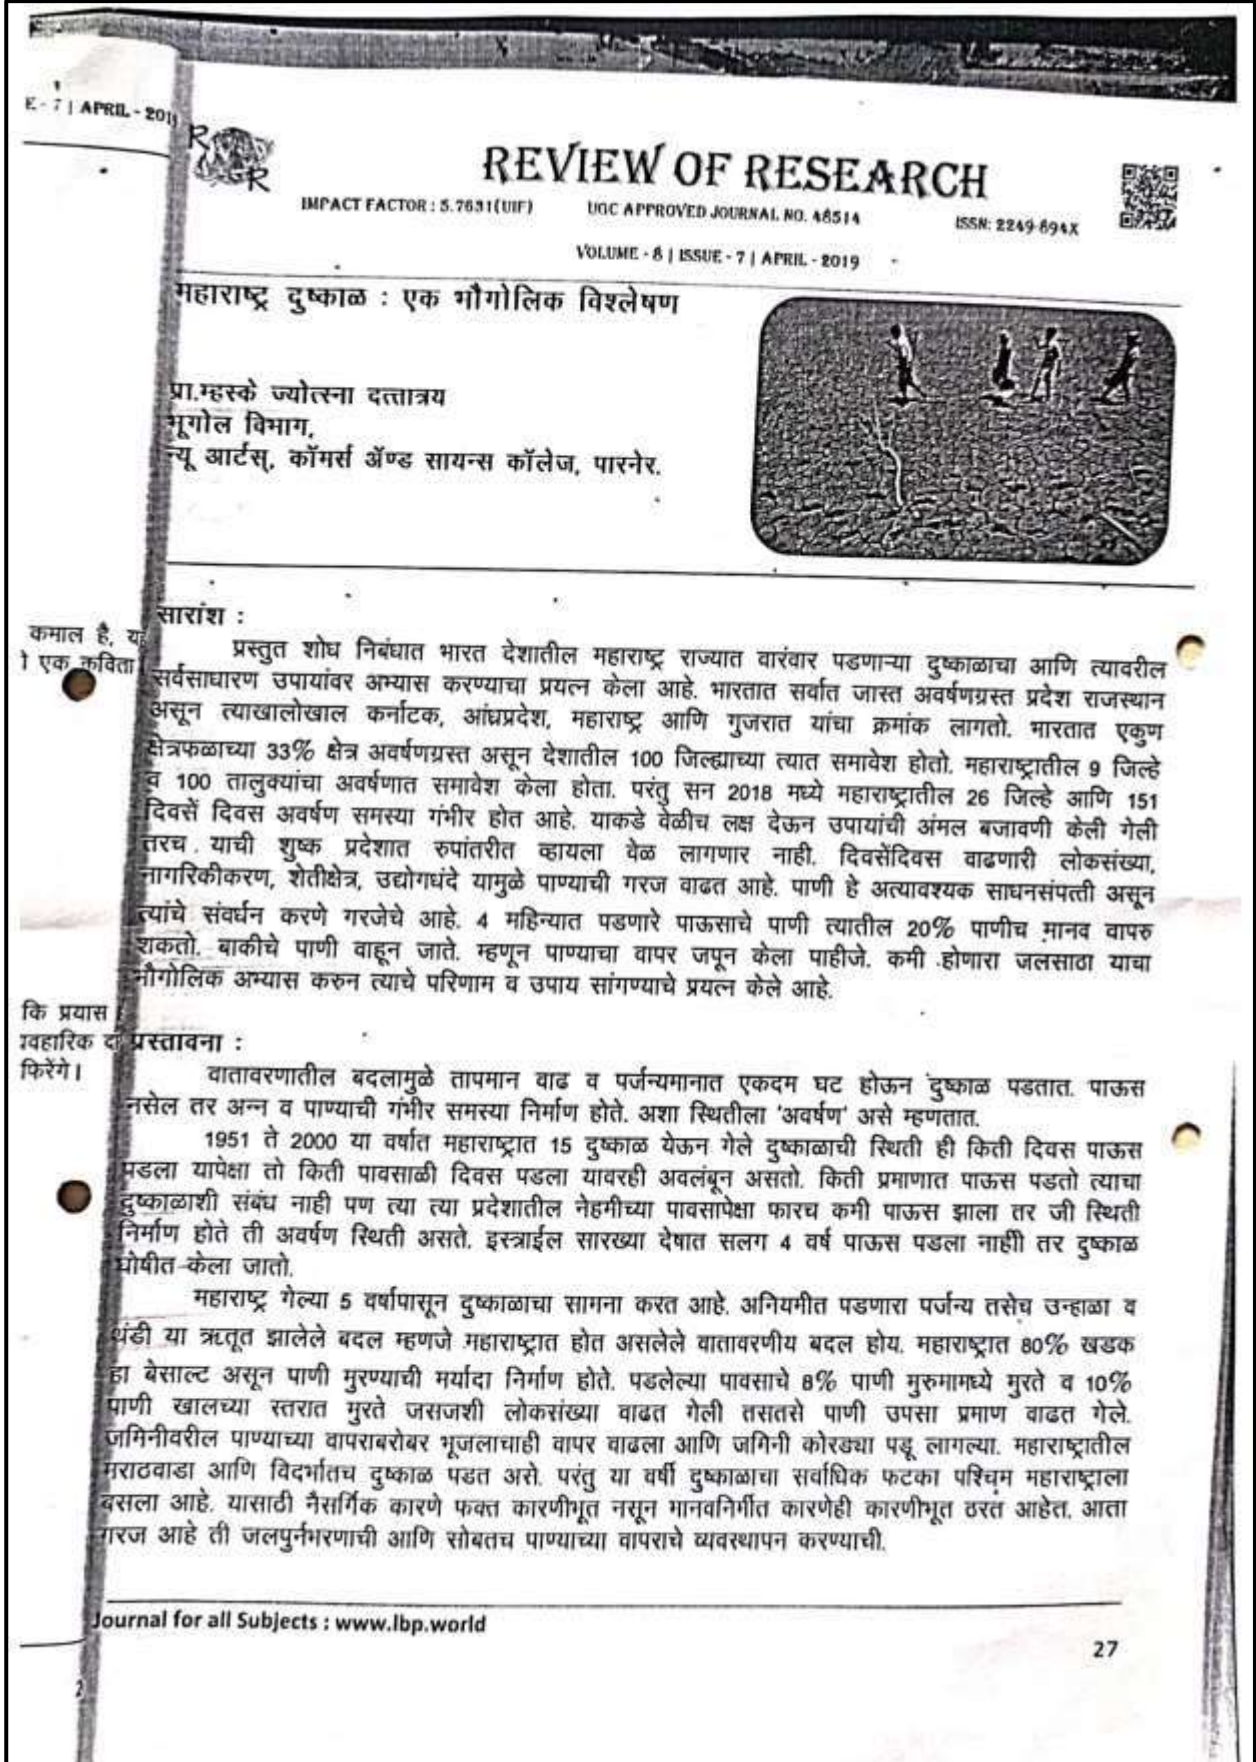 E - 7 | APRIL - 201
REVIEW OF RESEARCH
IMPACT FACTOR : 5.7631(UIF) UGC APPROVED JOURNAL NO. 48514 ISSN: 2249-894X
VOLUME - 8 | ISSUE - 7 | APRIL - 2019
महाराष्ट्र दुष्काळ : एक भौगोलिक विश्लेषण
प्रा.म्हस्के ज्योत्स्ना दत्तात्रय
भूगोल विभाग,
न्यू आर्टस्, कॉमर्स ॲण्ड सायन्स कॉलेज, पारनेर.
कमाल है, यह
एक कविता
सारांश :
प्रस्तुत शोध निबंधात भारत देशातील महाराष्ट्र राज्यात वारंवार पडणाऱ्या दुष्काळाचा आणि त्यावरील
सर्वसाधारण उपायांवर अभ्यास करण्याचा प्रयत्न केला आहे. भारतात सर्वात जास्त अवर्षणग्रस्त प्रदेश राजस्थान
असून त्याखालोखाल कर्नाटक, आंध्रप्रदेश, महाराष्ट्र आणि गुजरात यांचा क्रमांक लागतो. भारतात एकुण
क्षेत्रफळाच्या 33% क्षेत्र अवर्षणग्रस्त असून देशातील 100 जिल्ह्याच्या त्यात समावेश होतो. महाराष्ट्रातील 9 जिल्हे
व 100 तालुक्यांचा अवर्षणात समावेश केला होता. परंतु सन 2018 मध्ये महाराष्ट्रातील 26 जिल्हे आणि 151
दिवसें दिवस अवर्षण समस्या गंभीर होत आहे. याकडे वेळीच लक्ष देऊन उपायांची अंमल बजावणी केली गेली
तरच याची शुष्क प्रदेशात रुपांतरीत व्हायला वेळ लागणार नाही. दिवसेंदिवस वाढणारी लोकसंख्या,
नागरिकीकरण, शेतीक्षेत्र, उद्योगधंदे यामुळे पाण्याची गरज वाढत आहे. पाणी हे अत्यावश्यक साधनसंपत्ती असून
त्यांचे संवर्धन करणे गरजेचे आहे. 4 महिन्यात पडणारे पाऊसाचे पाणी त्यातील 20% पाणीच मानव वापरु
शकतो. बाकीचे पाणी वाहून जाते. म्हणून पाण्याचा वापर जपून केला पाहीजे. कमी होणारा जलसाठा याचा
भौगोलिक अभ्यास करुन त्याचे परिणाम व उपाय सांगण्याचे प्रयत्न केले आहे.
कि प्रयास
फिरेंगे।
प्रस्तावना :
वातावरणातील बदलामुळे तापमान वाढ व पर्जन्यमानात एकदम घट होऊन दुष्काळ पडतात. पाऊस
नसेल तर अन्न व पाण्याची गंभीर समस्या निर्माण होते. अशा स्थितीला 'अवर्षण' असे म्हणतात.
1951 ते 2000 या वर्षात महाराष्ट्रात 15 दुष्काळ येऊन गेले दुष्काळाची स्थिती ही किती दिवस पाऊस
पडला यापेक्षा तो किती पावसाळी दिवस पडला यावरही अवलंबून असतो. किती प्रमाणात पाऊस पडतो त्याचा
दुष्काळाशी संबंध नाही पण त्या त्या प्रदेशातील नेहमीच्या पावसापेक्षा फारच कमी पाऊस झाला तर जी स्थिती
निर्माण होते ती अवर्षण स्थिती असते. इस्त्राईल सारख्या देषात सलग 4 वर्ष पाऊस पडला नाही तर दुष्काळ
घोषीत केला जातो.
महाराष्ट्र गेल्या 5 वर्षापासून दुष्काळाचा सागना करत आहे. अनियमीत पडणारा पर्जन्य तसेच उन्हाळा व
थंडी या ऋतूत झालेले बदल म्हणजे महाराष्ट्रात होत असलेले वातावरणीय बदल होय. महाराष्ट्रात 80% खडक
हा बेसाल्ट असून पाणी मुरण्याची मर्यादा निर्माण होते. पडलेल्या पावसाचे 8% पाणी मुरुमामध्ये मुरते व 10%
पाणी खालच्या स्तरात मुरते जसजशी लोकसंख्या वाढत गेली तसतसे पाणी उपसा प्रमाण वाढत गेले.
जमिनीवरील पाण्याच्या वापराबरोबर भूजलाचाही वापर वाढला आणि जमिनी कोरड्या पडू लागल्या. महाराष्ट्रातील
मराठवाडा आणि विदर्भातच दुष्काळ पडत असे. परंतु या वर्षी दुष्काळाचा सर्वाधिक फटका पश्चिम महाराष्ट्राला
बसला आहे. यासाठी नैसर्गिक कारणे फक्त कारणीभूत नसून मानवनिर्मीत कारणेही कारणीभूत ठरत आहेत. आता
गरज आहे ती जलपुर्नभरणाची आणि सोबतच पाण्याच्या वापराचे व्यवस्थापन करण्याची.
Journal for all Subjects : www.lbp.world
27